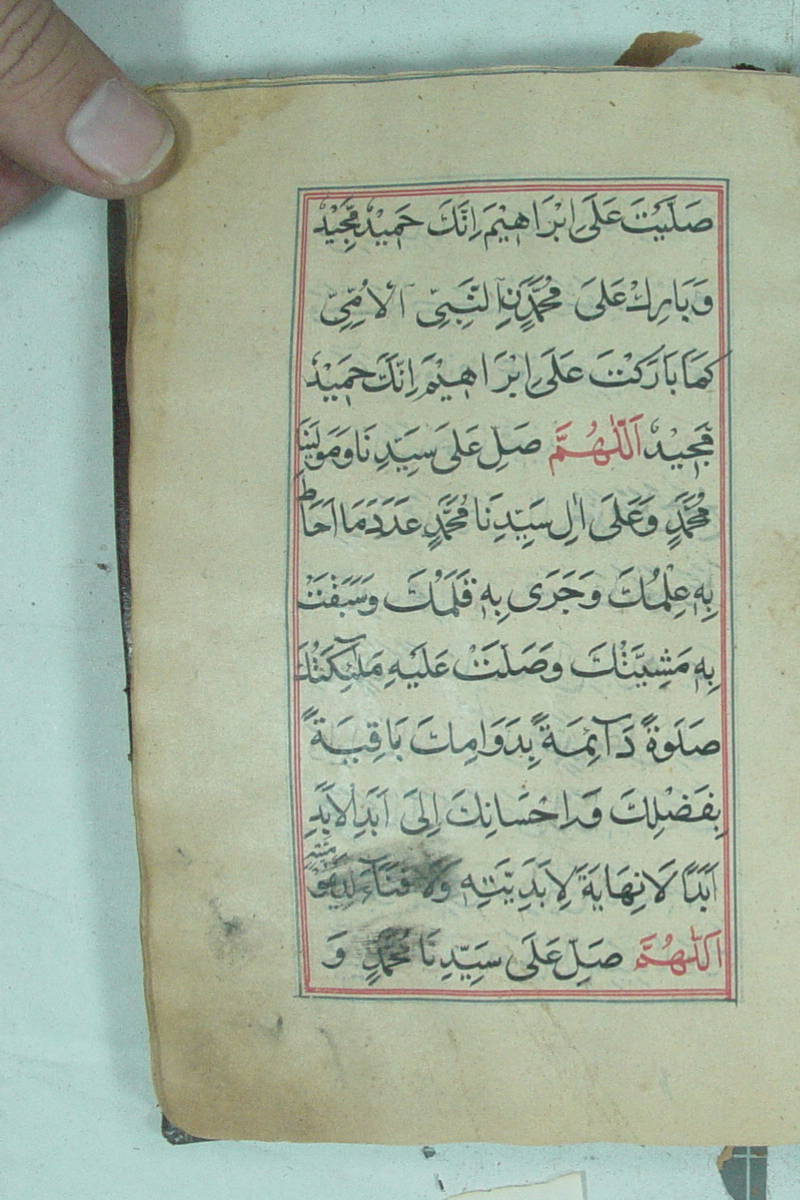 صَلَّيْتَ عَلَى اِبْرَاهِيْمَ اِنَّكَ حَمِيْدٌ مَّجِيْدٌ
وَبَارِكْ عَلَى مُحَمَّدٍنِ النَّبِيِّ الْاُمِّيِّ
كَمَا بَارَكْتَ عَلَى اِبْرَاهِيْمَ اِنَّكَ حَمِيْدٌ
مَّجِيْدٌ اَللّٰهُمَّ صَلِّ عَلَى سَيِّدِنَا وَمَوْلٰينَا
مُحَمَّدٍ وَعَلَى اٰلِ سَيِّدِنَا مُحَمَّدٍ عَدَدَ مَا اَحَاطَ
بِهٖ عِلْمُكَ وَجَرَى بِهٖ قَلَمُكَ وَسَبَقَتْ
بِهٖ مَشِيَّتُكَ وَصَلَّتْ عَلَيْهِ مَلٰٓئِكَتُكَ
صَلٰوةً دَآئِمَةً بِدَوَامِكَ بَاقِيَةً
بِفَضْلِكَ وَاِحْسَانِكَ اِلَى اَبَدِ الْاَبَدِ
اَبَدًا لَا نِهَايَةَ لِاَبَدِيَّتِهٖ وَلَا فَنَآءَ لِدَيْمُوْمَتِهٖ
اَللّٰهُمَّ صَلِّ عَلَى سَيِّدِنَا مُحَمَّدٍ وَ